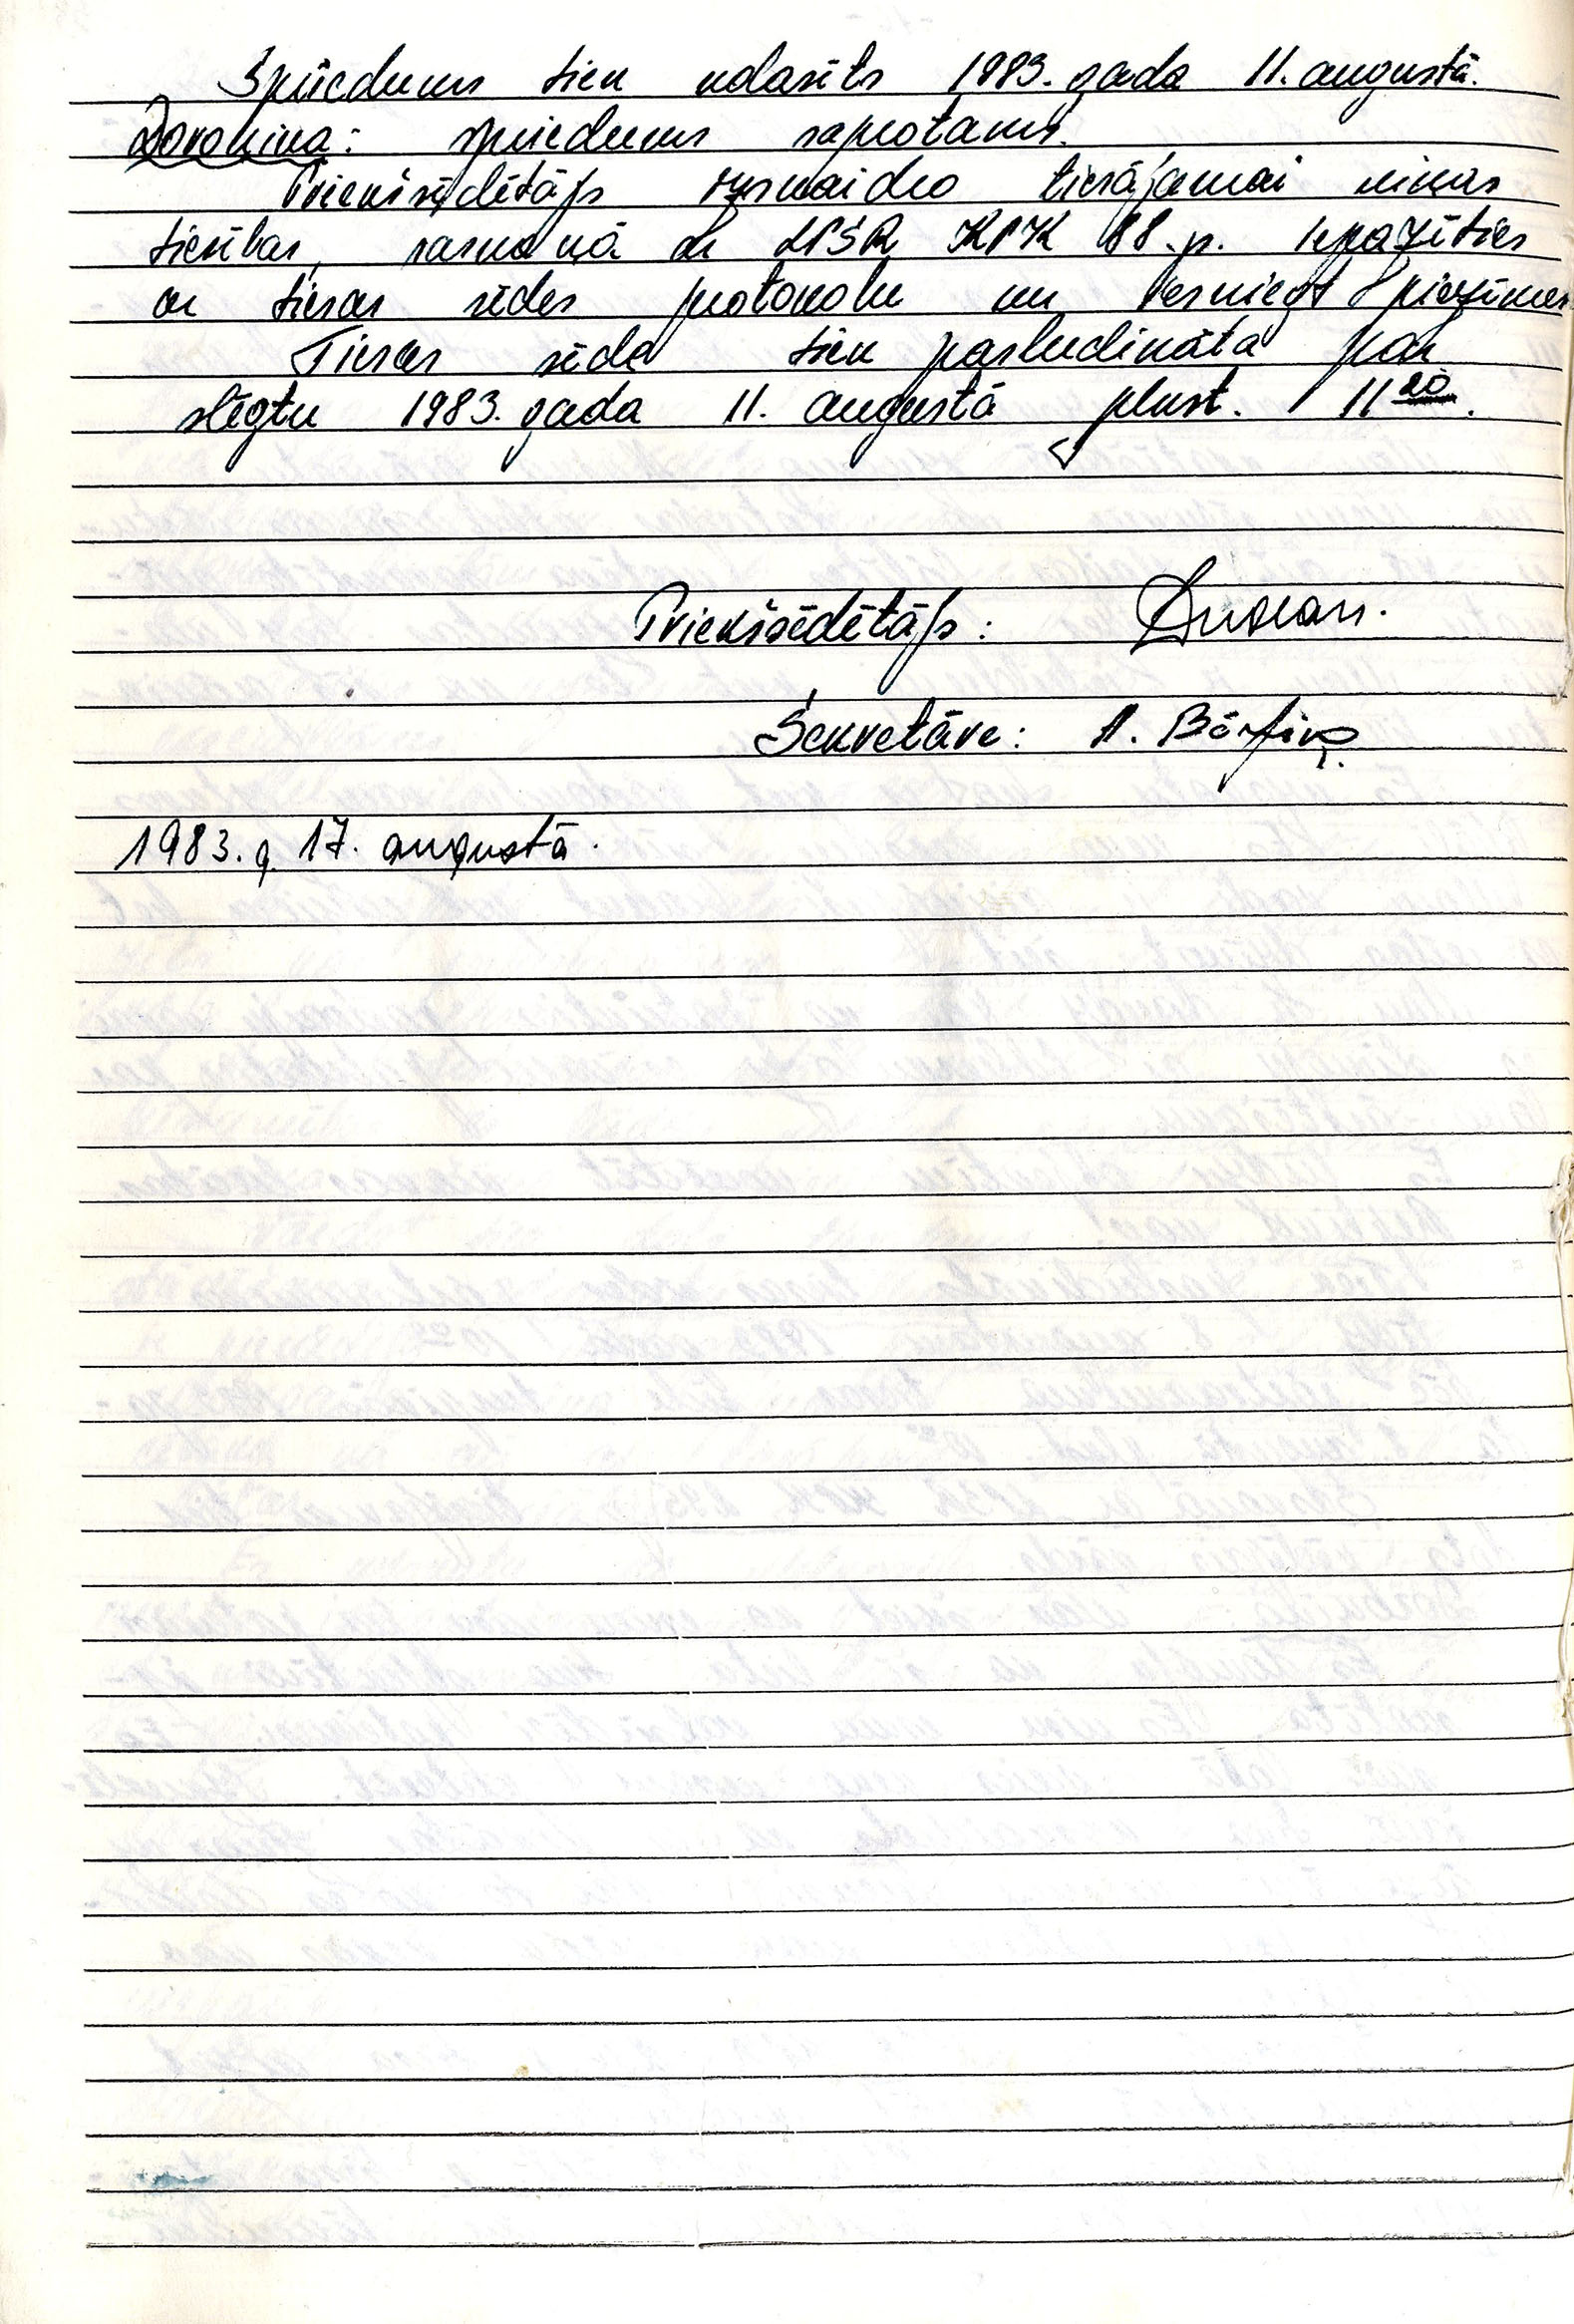 Spriedums tiek nolasīts 1983. gada 11. augustā.
Doronina: spriedums saprotams.
Priekšsēdētājs izskaidro tiesājamai viņas
tiesības, saskaņā ar LPSR KPK 88. p. iepazīties
ar tiesas sēdes protokolu un iesniegt piezīmes.
Tiesas sēde tiek pasludināta par
slēgtu 1983. gada 11. augustā plkst. 11 20.
Priekšsēdētājs:
Sekretāre: A. Bērziņa
1983. g. 17. augustā.